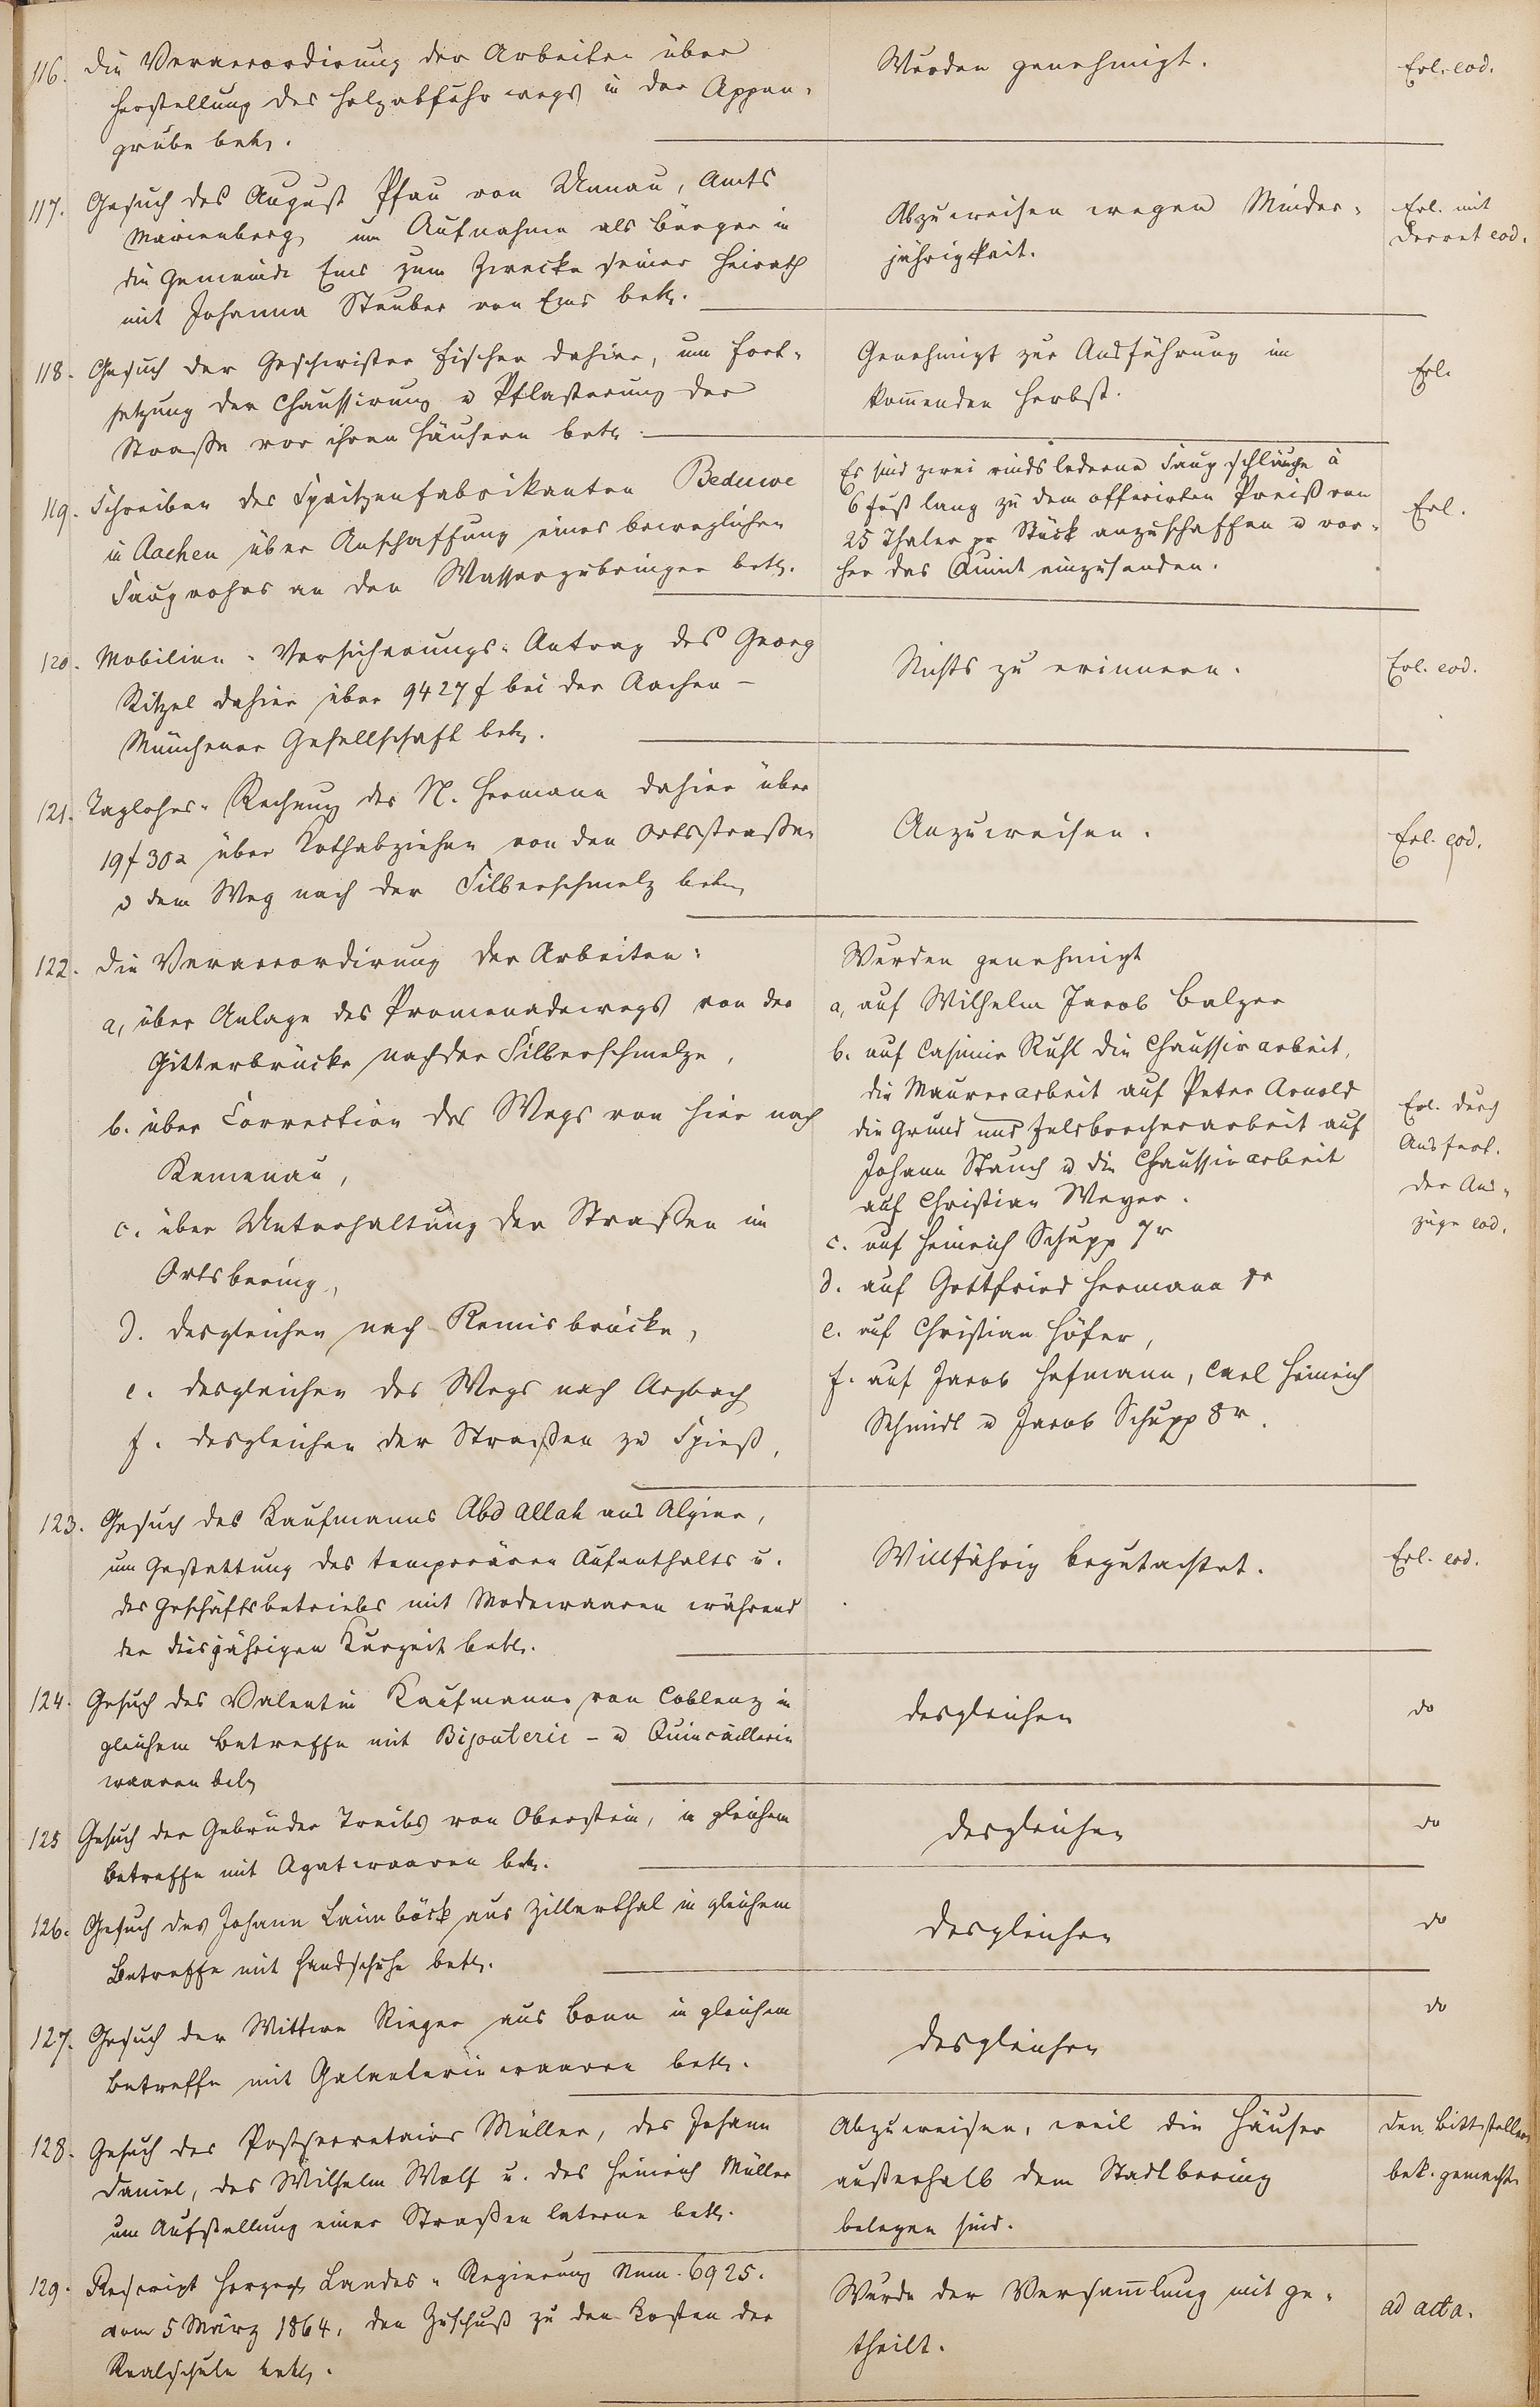 116. Die Veraccordirung der Arbeiten über
Herstellung des Holzabfuhrwegs in der Appen-
grube betr.
Wurden genehmigt.
Erl. eod.
117. Gesuch des August Pfau von Unnau, Amts
Marienberg, um Aufnahme als Bürger in
die Gemeinde Ems zum Zwecke seiner Heirath
mit Johanna Steuber von Ems betr.
Abzuweisen wegen Minder-
jährigkeit.
Erl. mit
Decret eod.
118. Gesuch der Geschwister Fischer dahier, um Fort-
setzung der Chaussirung u Pflasterung der
Straße vor ihren Häusern betr.
Genehmigt zur Ausführung im
kommenden Herbst.
Erl.
119. Schreiben des Spritzenfabrikanten Beduwe
in Aachen über Anschaffung eines beweglichen
Saugrohrs an den Wasserzubringer betr.
Es sind zwei rindslederne Saugschläuche à
6 Fuß lang zu dem offerirten Preiß von
25 Thaler pr Stück anzuschaffen u vor-
her das einzusenden.
Erl.
120. Mobilien-Versicherungs-Antrag des Georg
Kitzel dahier über 9427 f bei der Aachen-
Münchener Gesellschaft betr.
Nichts zu erinnern.
Erl. eod.
121. Taglohns-Rechnung des N. Hermann dahier über
19 f 30 x über Kothabziehen von den Ortsstraßen
u dem Weg nach der Silberschmelz betr.
Anzuweisen.
Erl. eod.
122. Die Veraccordirung der Arbeiten:
a, über Anlage des Promenadewegs von der
Gitterbrücke nach der Silberschmelze,
b. über Correction des Wegs von hier nach
Kemenau,
c. über Unterhaltung der Straßen im
Ortsbering,
d. desgleichen nach Remisbrücke,
e. desgleichen des Wegs nach Arzbach
f. desgleichen der Straßen zu Spieß,
Wurden genehmigt
a, auf Wilhelm Jacob Balzer
b. auf Casimir Ruhl die Chaussirarbeit,
die Maurerarbeit auf Peter Arnold
die Grund und Felsbrecherarbeit auf
Johann Stauch u. die Chaussirarbeit
auf Christian Weyer.
c. auf Heinrich Schupp 7r
d. auf Gottfried Hermann
e. auf Christian Höfer,
f. auf Jacob Hofmann, Carl Heinrich
Schmidt u Jacob Schupp 8r.
Erl. durch
Ausfert.
der Aus-
züge eod.
123. Gesuch des Kaufmanns Abd allah aus Algier,
um Gestattung des temporären Aufenthalts u.
des Geschäftsbetriebs mit Modewaaren während
der diesjährigen Kurzeit betr.
Willfährig begutachtet.
Erl. eod.
124. Gesuch des Valentin Kaufmann von Coblenz in
gleichem Betreffe mit Bijouterie- u Quincaillerie
waaren betr
desgleichen
do
125 Gesuch der Gebrüder Treibs von Oberstein, in gleichem
Betreffe mit Agatwaaren betr.
desgleichen
do
126. Gesuch des Johann Laimböck aus Zillerthal in gleichem
Betreffe mit Handschuhe betr.
desgleichen
do
127. Gesuch der Wittwe Rieger aus Bonn in gleichem
Betreffe mit Galanteriewaaren betr.
desgleichen
do
128. Gesuch des Postsecretairs Müller, des Johann
Daniel, des Wilhelm Wolf u. des Heinrich Müller
um Aufstellung einer Straßenlaterne betr.
Abzuweisen, weil die Häuser
außerhalb dem Stadtbering
belegen sind.
Den Bittstellern
bek. gemacht.
129. Rescript Herzogl. Landes-Regierung Num. 6925.
vom 5 März 1864, den Zuschuß zu den Kosten der
Realschule betr.
Wurde der Versammlung mit ge-
theilt.
ad acta.